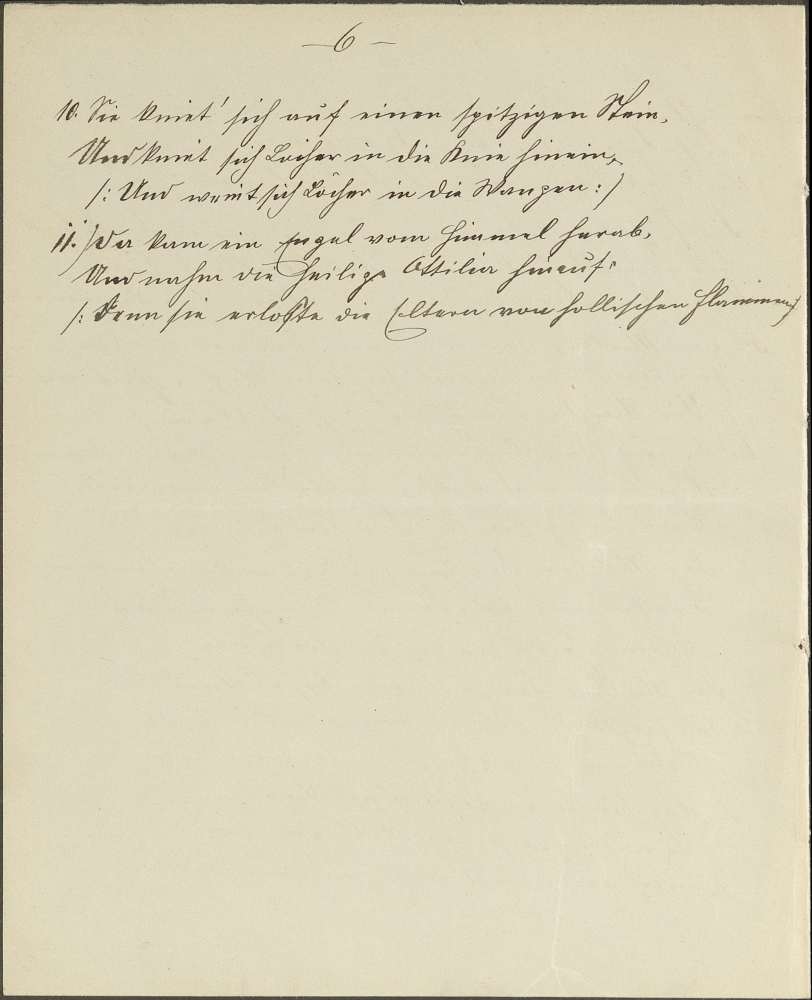 — 6 —
10. Sie kniet' sich auf einen spitzigen Stein,
Und kniet sich Löcher in die Knie hinein,
/: Und weint sich Löcher in die Wangen :/
11. Da kam ein Engel vom Himmel herab,
Und nahm die heilige Ottilia hinauf:
/: Denn sie erlöste die Eltern von höllischen Flammen :/